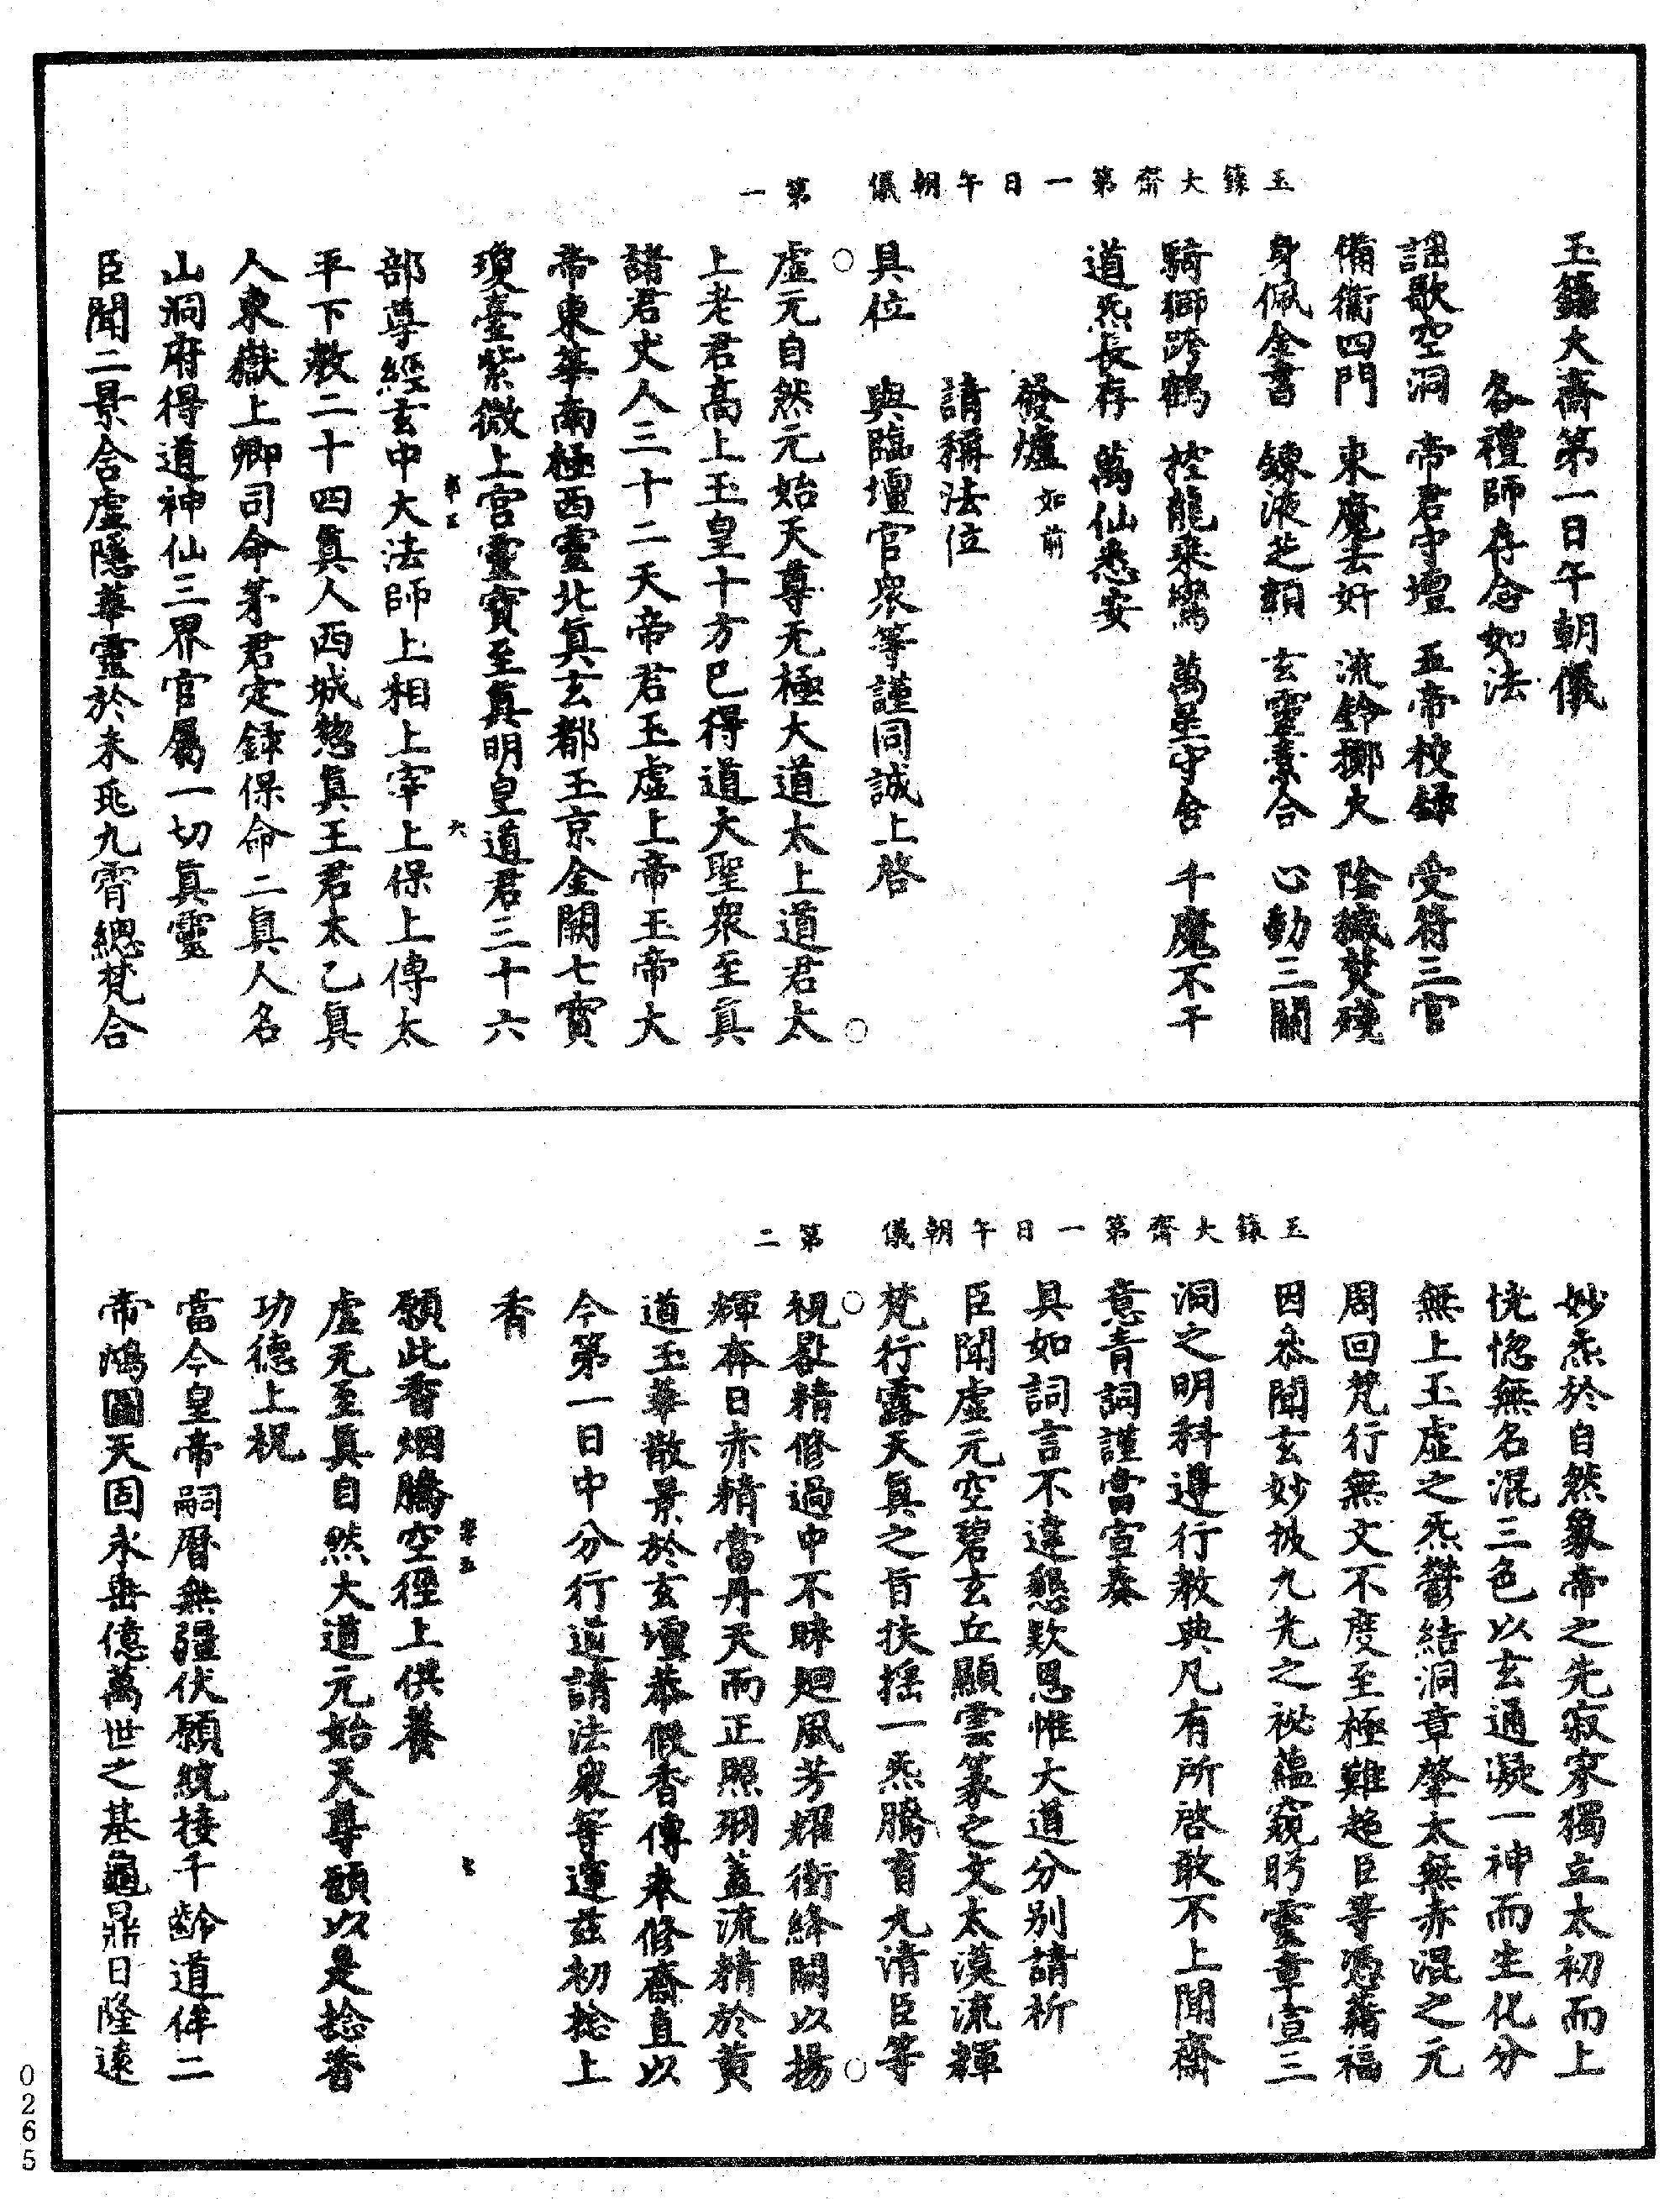 玉籙大齋第一日午朝儀　第一
玉籙大齋第一日午朝儀
各禮師存念如法
謠歌空洞　帝君守壇　五帝校録　受符三官
備衛四門　束魔去奸　流鈴擲火　陰穢焚殘
身佩金書　鍊液芝顏　玄靈素合　心動三關
騎獅跨鶴　控龍乘鸞　萬星守舍　千魔不干
道炁長存　萬仙悉安
發爐如前
請稱法位
具位　與臨壇官衆等謹同誠上啓
虛无自然元始天尊无極大道太上道君太
上老君高上玉皇十方已得道大聖衆至真
諸君丈人三十二天帝君玉虛上帝玉帝大
帝東華南極西靈北真玄都玉京金闕七寳
瓊臺紫微上宮靈寳至真明皇道君三十六
部尊經玄中大法師上相上宰上保上傅太
平下教二十四真人西城揔真王君太乙真
人東嶽上卿司命茅君定録保命二真人名
山洞府得道神仙三界官屬一切真靈
臣聞二景含虛隱華靈於未兆九霄總梵合
玉籙大齋第一日午朝儀　第二
妙炁於自然象帝之先寂寥獨立太初而上
恍惚無名混三色以玄通凝一神而生化分
無上玉虛之炁鬱結洞章肇太無赤混之元
周回梵行無文不度至極難超臣等憑藉福
因忝聞玄妙披九光之祕蘊窺眄靈章宣三
洞之明科遵行教典凡有所啓敢不上聞齋
意青詞謹當宣奏
具如詞言不違懇欵恩惟大道分別請祈
臣聞虛元空碧玄丘顯雲篆之文太漠流輝
梵行露天真之旨扶搖一炁騰育九清臣等
視晷精修過中不昧廻風芳耀衝絳闕以揚
輝奔日赤精當丹天而正照羽蓋流精於黄
道玉華散景於玄壇恭假香傳奉修齋直以
今第一日中分行道請法衆等運茲初捻上
香
願此香烟騰空徑上供養
虛无至真自然大道元始天尊願以是捻香
功德上祝
當今皇帝嗣曆無疆伏願統接千齡道侔二
帝鴻圖天固永垂億萬世之基龜鼎日隆遠
0265